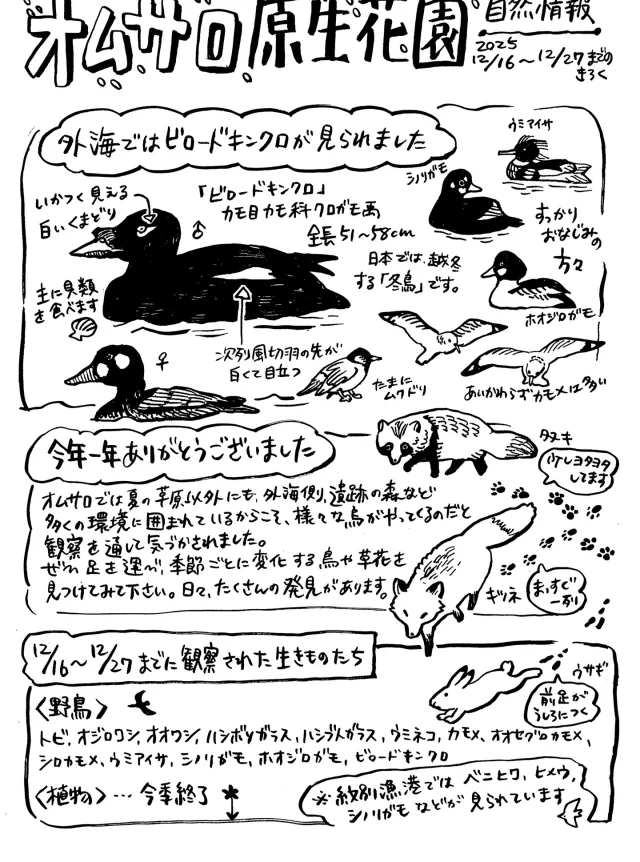 オムサロ原生花園
自然情報
2025
12/16〜12/27までの
きろく
外海ではビロードキンクロが見られました
いかつく見える
白いくまどり
♂
「ビロードキンクロ」
カモ目カモ科クロガモ属
全長51〜58cm
日本では、越冬
する「冬鳥」です。
主に貝類
を食べます
次列風切羽の先が
白くて目立つ
♀
たまに
ムクドリ
ウミアイサ
シノリガモ
すっかり
おなじみの
方々
ホオジロガモ
あいかわらずカモメは多い
今年一年ありがとうございました
オムサロでは夏の草原以外にも、外海側、遺跡の森など
多くの環境に囲まれているからこそ、様々な鳥がやってくるのだと
観察を通して気づかされました。
ぜひ足を運び、季節ごとに変化する鳥や草花を
見つけてみて下さい。日々、たくさんの発見があります。
タヌキ
ヨタヨタ
してます
キツネ
まっすぐ
一列
12/16〜12/27までに観察された生きものたち
〈野鳥〉
トビ、オジロワシ、オオワシ、ハシボソガラス、ハシブトガラス、ウミネコ、カモメ、オオセグロカモメ、
シロカモメ、ウミアイサ、シノリガモ、ホオジロガモ、ビロードキンクロ
ウサギ
前足が
うしろにつく
〈植物〉…今季終了
※紋別漁港ではベニヒワ、ヒメウ、
シノリガモなどが見られています